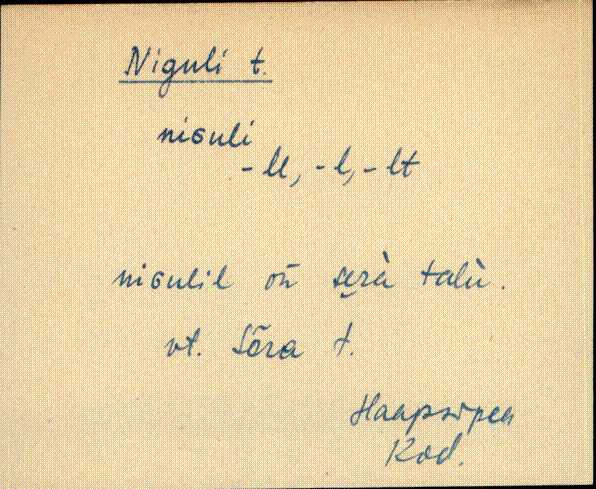 Niguli t.
niɢuli
-ll, -l, -lt
niɢulil on̄ se̮rà talù.
vt. Sõra t.
Haapsipea
Kod.